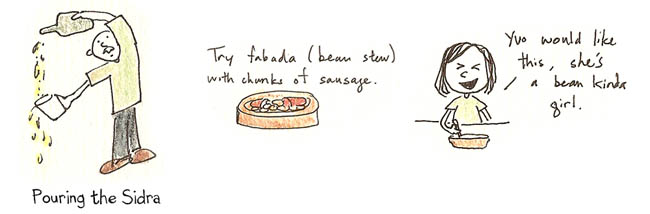 Try fabada (bean stew)
with chunks of sausage.
Yuo would like
this, she's
a bean kinda
girl.
Pouring the Sidra